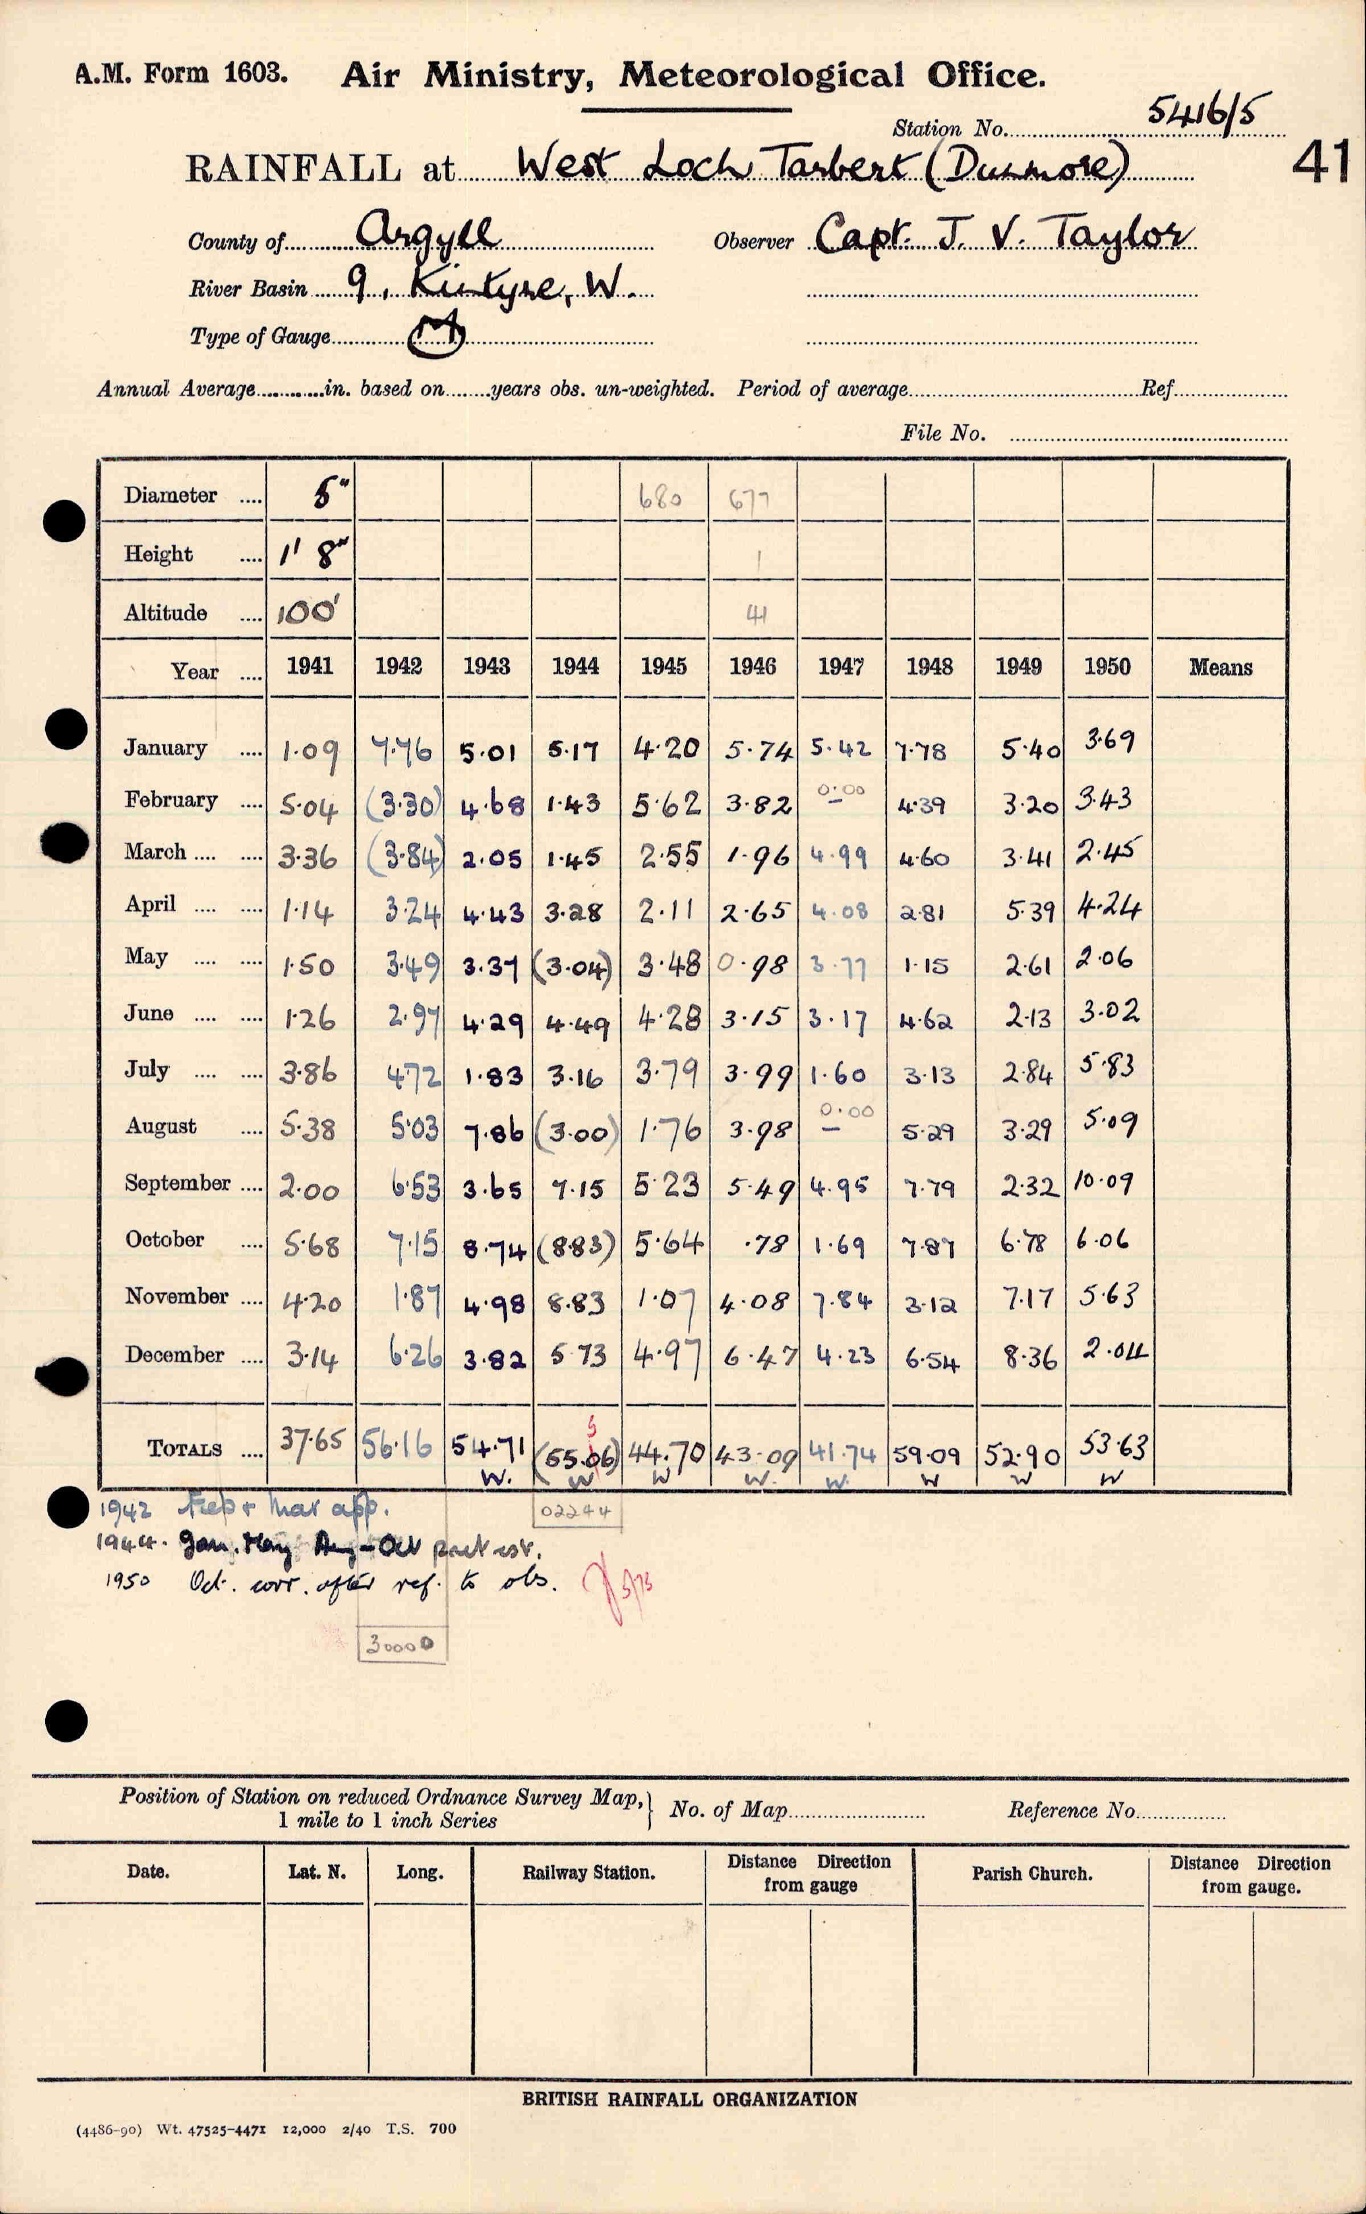 A.M. Form 1603. Air Ministry, Meteorological Office.
Station No. 5416/5
41
RAINFALL at West Loch Tarbert (Dunmore)
County of Argyll Observer Capt. J. V. Taylor
River Basin 9. Kintyre, W.
Type of Gauge M
Annual Average in. based on years obs. un-weighted. Period of average Ref
File No.
Diameter 5" 680 677
Height 1' 8" 1
Altitude 100' 41
Year 1941 1942 1943 1944 1945 1946 1947 1948 1949 1950 Means
January 1.09 7.76 5.01 5.17 4.20 5.74 5.42 7.78 5.40 3.69
February 5.04 (3.30) 4.68 1.43 5.62 3.82 0.00 – 4.39 3.20 3.43
March 3.36 (3.84) 2.05 1.45 2.55 1.96 4.99 4.60 3.41 2.45
April 1.14 3.24 4.43 3.28 2.11 2.65 4.08 2.81 5.39 4.24
May 1.50 3.49 3.37 (3.04) 3.48 0.98 3.77 1.15 2.61 2.06
June 1.26 2.97 4.29 4.49 4.28 3.15 3.17 4.62 2.13 3.02
July 3.86 4.72 1.83 3.16 3.79 3.99 1.60 3.13 2.84 5.83
August 5.38 5.03 7.86 (3.00) 1.76 3.98 0.00 – 5.29 3.29 5.09
September 2.00 6.53 3.65 7.15 5.23 5.49 4.95 7.79 2.32 10.09
October 5.68 7.15 8.74 (8.83) 5.64 .78 1.69 7.87 6.78 6.06
November 4.20 1.87 4.98 8.83 1.07 4.08 7.84 3.12 7.17 5.63
December 3.14 6.26 3.82 5.73 4.97 6.47 4.23 6.54 8.36 2.04
5
TOTALS 37.65 56.16 54.71 (55.06) 44.70 43.09 41.74 59.09 52.90 53.63
W. W W W. W. W W W
1942 Feb + Mar app.
02244
1944. Jan. May Aug–Oct part est.
1950 Oct. corr. after ref. to obs.
5/73
30000
Position of Station on reduced Ordnance Survey Map, 1 mile to 1 inch Series No. of Map Reference No.
Date. Lat. N. Long. Railway Station. Distance Direction from gauge Parish Church. Distance Direction from gauge.
BRITISH RAINFALL ORGANIZATION
(4486-90) Wt. 47525-4471 12,000 2/40 T.S. 700